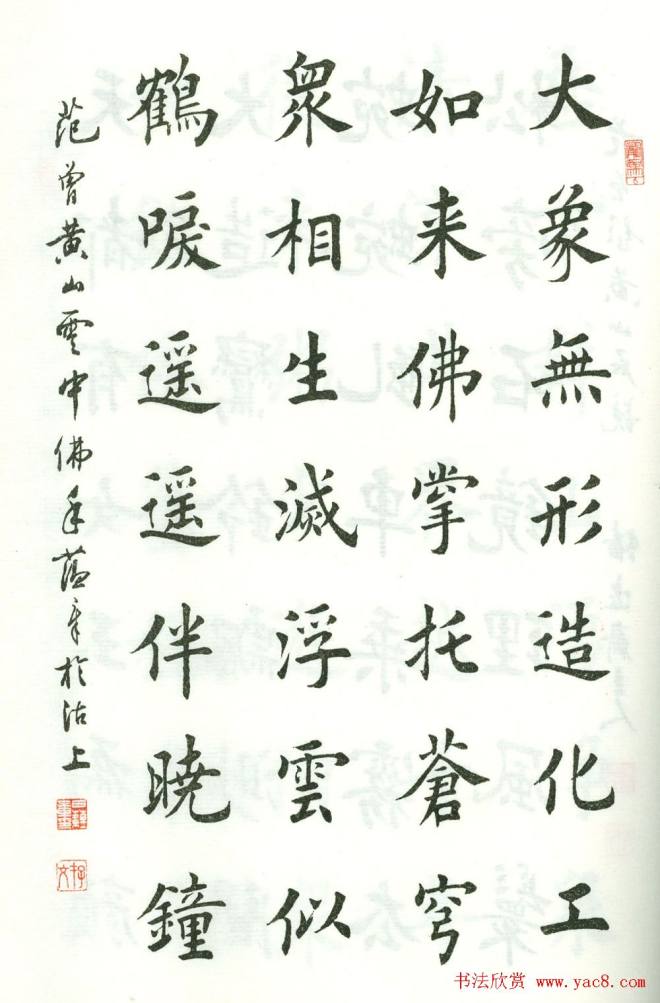 大象無形造化工
如来佛掌托蒼穹
眾相生滅浮雲似
鶴唳遥遥伴曉鐘
范曾黄山雲中佛手蕴章於沽上
书法欣赏 www.yac8.com